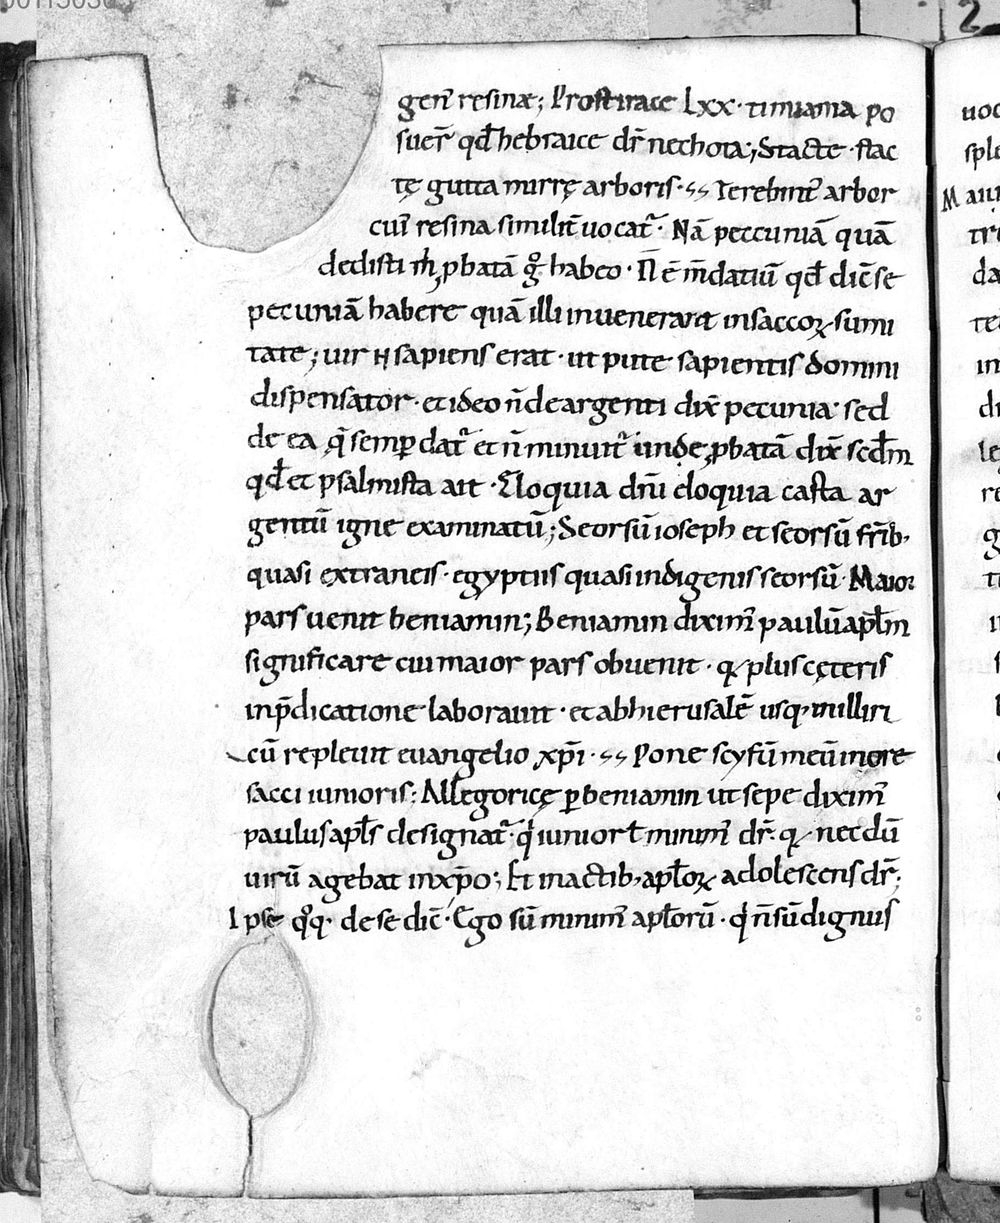 gen᷒ resinæ; Prostirace Lxx· timiama po
suer̄ qđ hebraice dr̄ nechota; Stacte· stac
tę gutta mirrę arboris· Terebint᷒ arbor
cui᷒ resina similit̄ uocat᷑· Nā peccuniā quā
dedisti m̄ ꝓbatā g̊ habeo· N̄ ē m̄datiū qđ dic̄ se
pecuniā habere quā illi inuenerant insaccoꝝ sumi
tate; uir ħ sapiens erat· ut pute sapientis domini
dispensator· et ideo n̄ de argenti dix̄ pecunia· sed
de ea q̄ semꝑ dat᷑ et n̄ minuit᷑ unde ꝓbatā dix̄ scđm
qđ et psalmista ait· Eloquia dn̄i eloquia casta ar
gentū igne examinatū; Seorsū ioseph et seorsū fr̄ib;
quasi extraneis· egyptiis quasi indigenis seorsū· Maior
pars uenit beniamin; Beniamin dixim᷒ paulū apłm
significare cui maior pars obuenit· qꝫ plus cęteris
inp̄dicatione laborauit· et abhierusalē usq; in illiri
cū repleuit euangelio xp̄i· Pone scyfū meū inore
sacci iunioris: Allegoricę ꝑ beniamin ut sepe dixim᷒
paulus apłs designat᷑· q̇ iunior ł minim᷒ dr̄· qꝫ necdū
uirū agebat inxp̄o; Et inactib; apłoꝝ adolescens dr̄;
Ipse q̊q; de se dic̄· Ego sū minim᷒ apłorū· q̇ n̄ sū dignus
uoc
sple
M
da
in
re